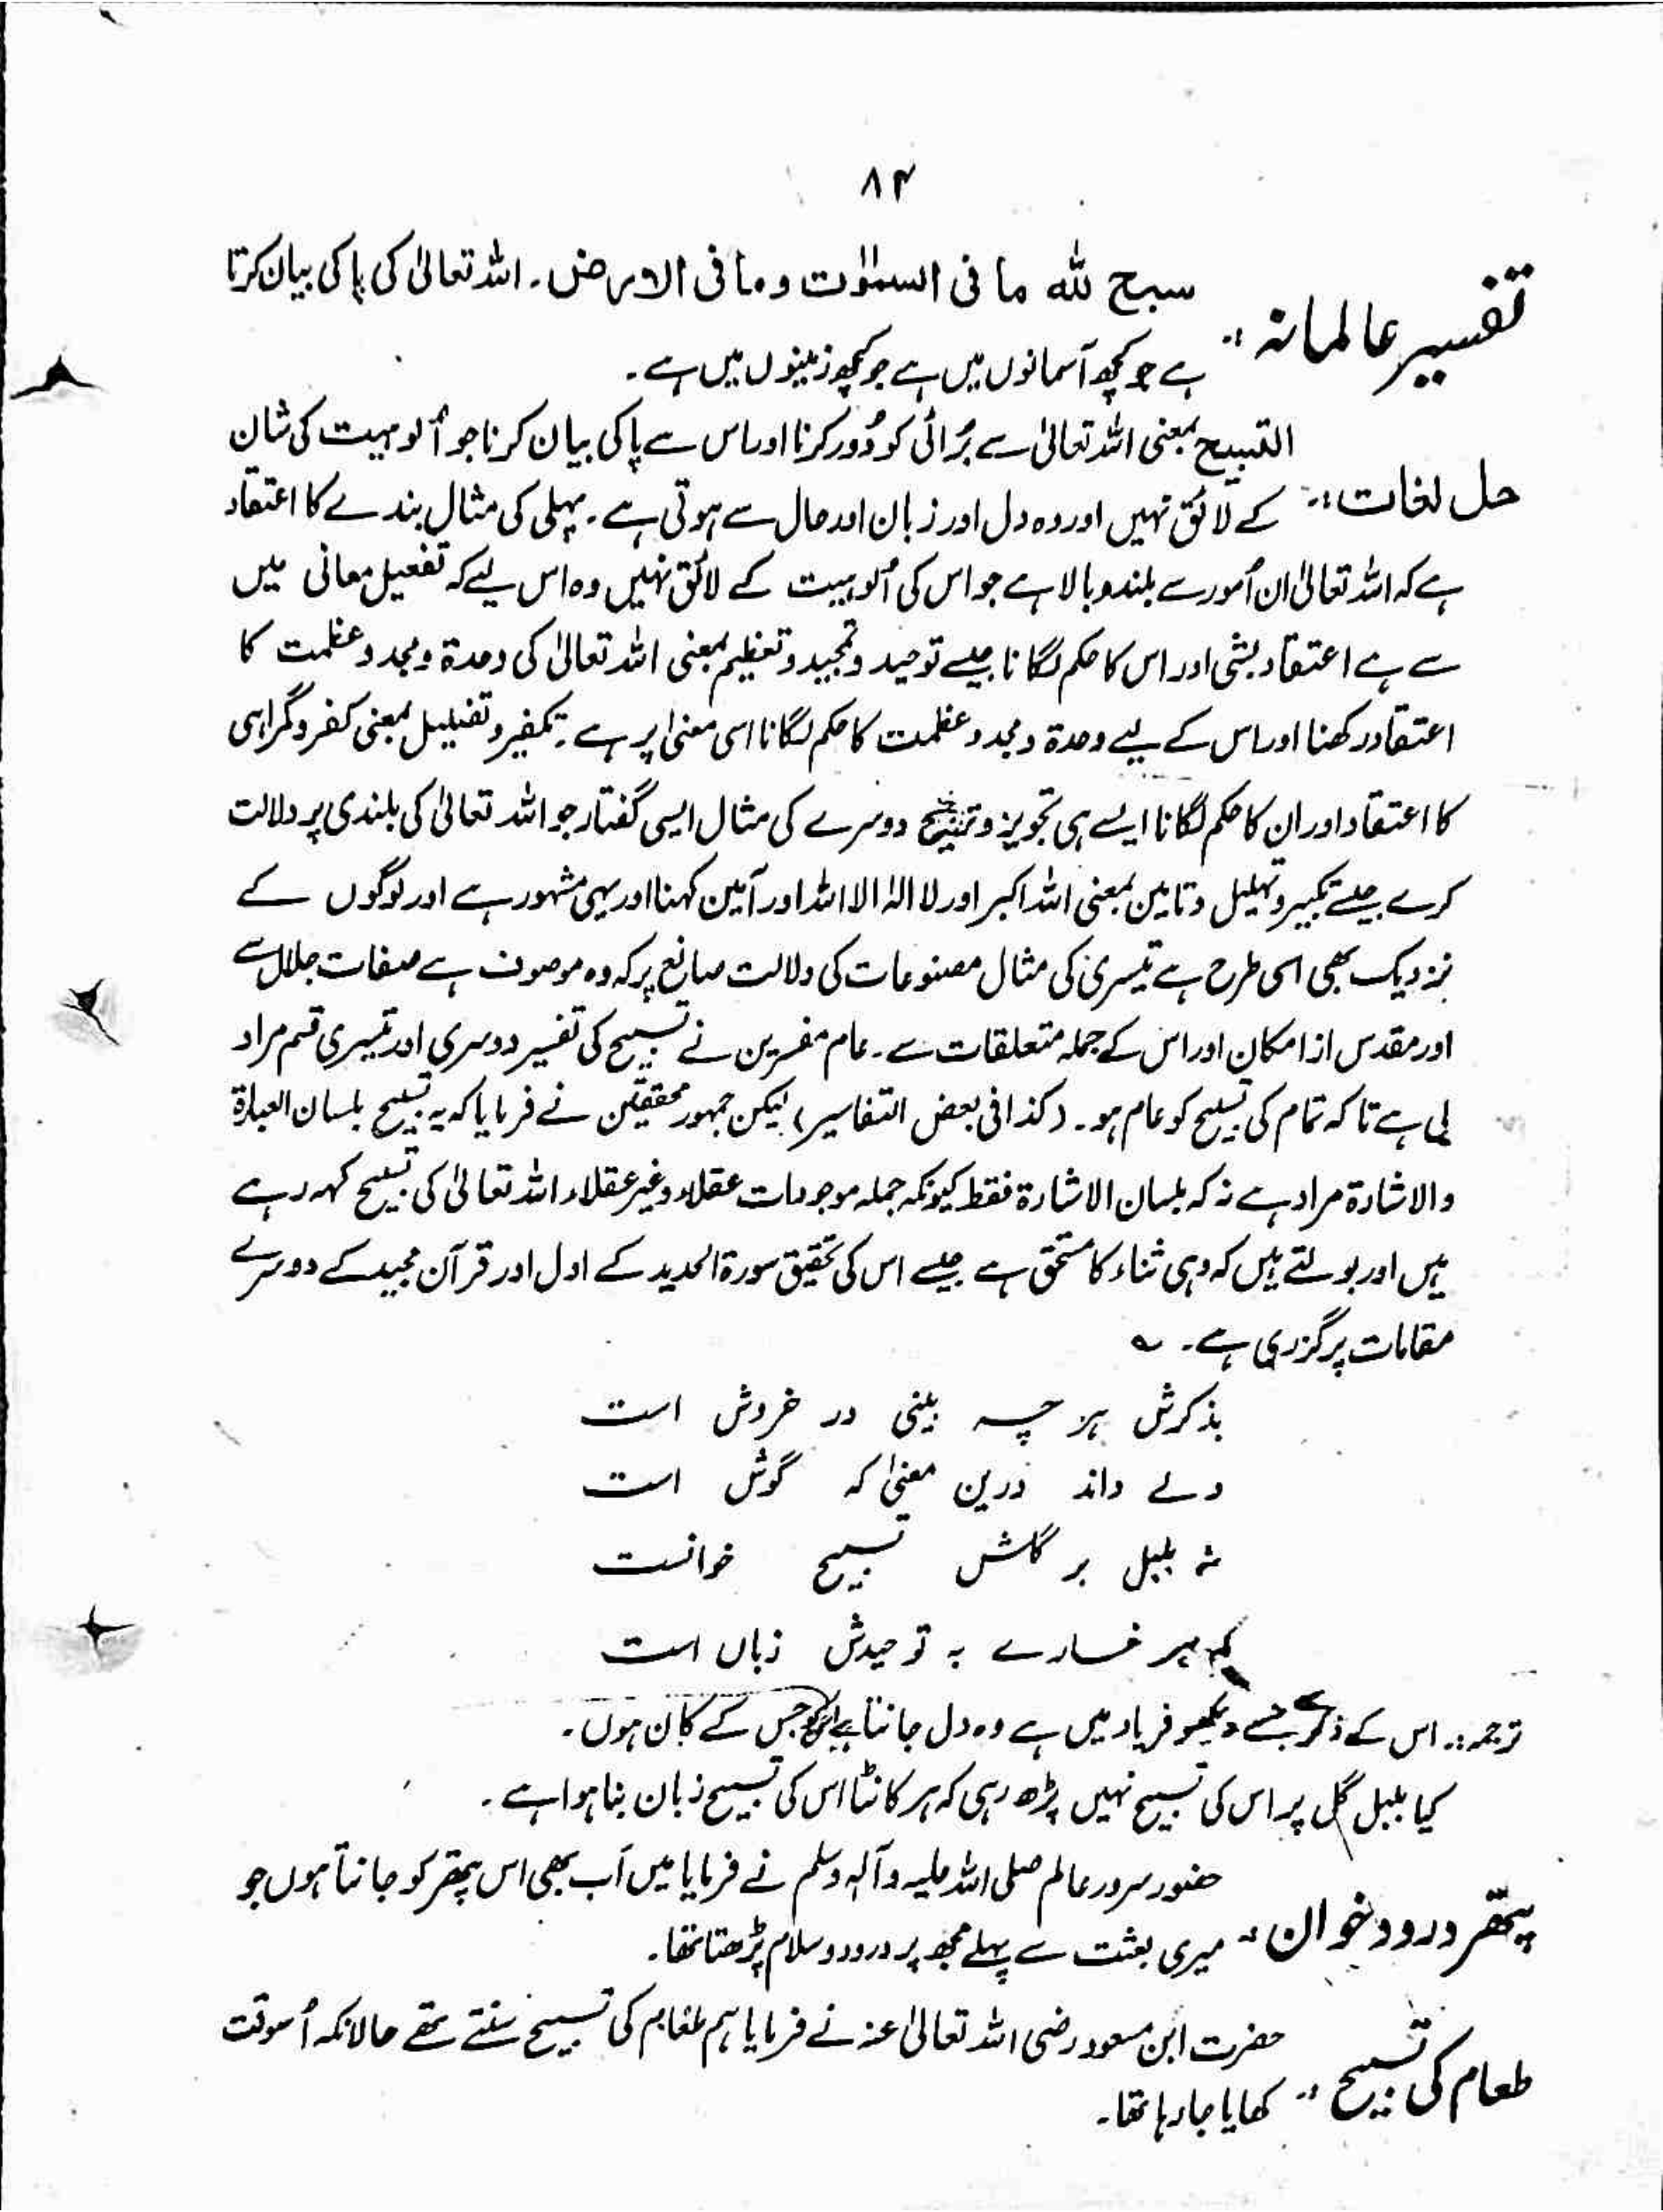 ۸۴
تفسیر عالمانہ :۔ سبح للہ ما فی السمٰوٰت وما فی الارض۔ اللہ تعالیٰ کی پاکی بیان کرتا
ہے جو کچھ آسمانوں میں ہے جو کچھ زمینوں میں ہے۔
حل لغات :۔ التسبیح بمعنی اللہ تعالیٰ سے بُرائی کو دُور کرنا اور اس سے پاکی بیان کرنا جو اُلوہیت کی شان
کے لائق نہیں اور وہ دل اور زبان اور حال سے ہوتی ہے۔ پہلی کی مثال بندے کا اعتقاد
ہے کہ اللہ تعالیٰ ان اُمور سے بلند و بالا ہے جو اس کی اُلوہیت کے لائق نہیں وہ اس لیے کہ تفعیل معانی میں
سے ہے اعتقاد بشی اور اس کا حکم لگانا جیسے توحید و تمجید و تعظیم بمعنی اللہ تعالیٰ کی وحدۃ و مجد و عظمت کا
اعتقاد رکھنا اور اس کے لیے وحدۃ و مجد و عظمت کا حکم لگانا اسی معنیٰ پر ہے۔ تکفیر و تضلیل بمعنی کفر و گمراہی
کا اعتقاد اور ان کا حکم لگانا ایسے ہی تجویز و دوسرے کی مثال ایسی گفتار جو اللہ تعالیٰ کی بلندی پر دلالت
کرے جیسے تکبیر و تہلیل و تامین بمعنی اللہ اکبر اور لا الہٰ الا اللہ اور آمین کہنا اور یہی مشہور ہے اور لوگوں کے
نزدیک بھی اسی طرح ہے تیسری کی مثال مصنوعات کی دلالت صانع پر کہ وہ موصوف ہے صفات جلال سے
اور مقدس از امکان اور اس کے جملہ متعلقات سے۔ عام مفسرین نے تسبیح کی تفسیر دوسری اور تیسری قسم مراد
لی ہے تا کہ تمام کی تسبیح کو عام ہو۔ (کذا فی بعض التفاسیر) لیکن جمہور محققین نے فرمایا کہ یہ تسبیح بلسان العبارۃ
والاشارۃ مراد ہے نہ کہ بلسان الاشارۃ فقط کیونکہ جملہ موجودات عقلاء و غیر عقلاء اللہ تعالیٰ کی تسبیح کہہ رہے
ہیں اور بولتے ہیں کہ وہی ثناء کا مستحق ہے جیسے اس کی تحقیق سورۃ الحدید کے اول اور قرآن مجید کے دوسرے
مقامات پر گزری ہے۔ ؎
بذکرش ہر چہ بینی در خروش است
دلے داند درین معنیٰ کہ گوش است
نہ بلبل بر گلش تسبیح خوانست
کہ ہر خارے بہ توحیدش زباں است
ترجمہ :۔ اس کے ذکر سے جسے دیکھو فریاد میں ہے وہ دل جانتا ہے جس کے کان ہوں۔
کیا بلبل گل پر اس کی تسبیح نہیں پڑھ رہی کہ ہر کانٹا اس کی تسبیح زبان بنا ہوا ہے۔
پتھر درود خوان :۔ حضور سرور عالم صلی اللہ علیہ وآلہٖ وسلم نے فرمایا میں اَب بھی اس پتھر کو جانتا ہوں جو
میری بعثت سے پہلے مجھ پر درود و سلام پڑھتا تھا۔
طعام کی تسبیح :۔ حضرت ابن مسعود رضی اللہ تعالیٰ عنہ نے فرمایا ہم طعام کی تسبیح سنتے تھے حالانکہ اُسوقت
کھایا جا رہا تھا۔